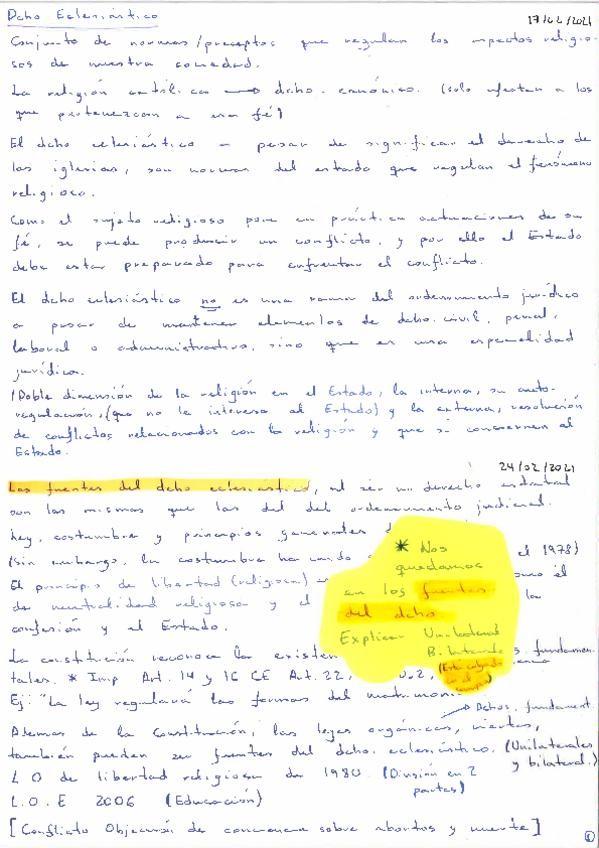 Dcho Eclesiástico 17/02/2021
Conjunto de normas/preceptos que regulan los aspectos religio-
sos de nuestra sociedad.
La religión católica → dcho. canónico. (solo afectan a los
que pertenezcan a esa fé)
El dcho eclesiástico a pesar de significar el derecho de
las iglesias, son normas del estado que regulan el fenómeno
religioso.
Como el sujeto religioso pone en práctica actuaciones de su
fé, se puede producir un conflicto, y por ello el Estado
debe estar preparado para enfrentar el conflicto.
El dcho eclesiástico no es una rama del ordenamiento jurídico
a pesar de mantener elementos de dcho. civil, penal,
laboral o administrativo, sino que es una especialidad
jurídica.
(Doble dimensión de la religión en el Estado, la interna, su auto-
regulación, (que no le interesa al Estado) y la externa, resolución
de conflictos relacionados con la religión y que si conciernen al
Estado.
24/02/2021
Las fuentes del dcho eclesiástico, al ser un derecho estatal
son las mismas que las del del ordenamiento judicial.
ley, costumbre y principios generales
(sin embargo, la costumbre ha el 1978)
El principio de libertad (religiosa) como él
de neutralidad religiosa y el la
confesión y el Estado.
* Nos
quedamos
en las fuentes
del dcho.
Explicar Unilateral
Bilaterales
(Está colgado
en el
campus)
La constitución reconoce la fundamen-
tales. * Imp Art. 14 y 16 CE Art. 22,
Ej: "La ley regulará las formas del
Dchos. fundament.
Ademas de la Constitución, las leyes orgánicas, ciertas,
también pueden ser fuentes del dcho. eclesiástico. (Unilaterales
y bilateral.)
L O de libertad religiosa de 1980. (División en 2
partes)
L.O.E 2006 (Educación)
[Conflicto Objeción de conciencia sobre abortos y muerte]